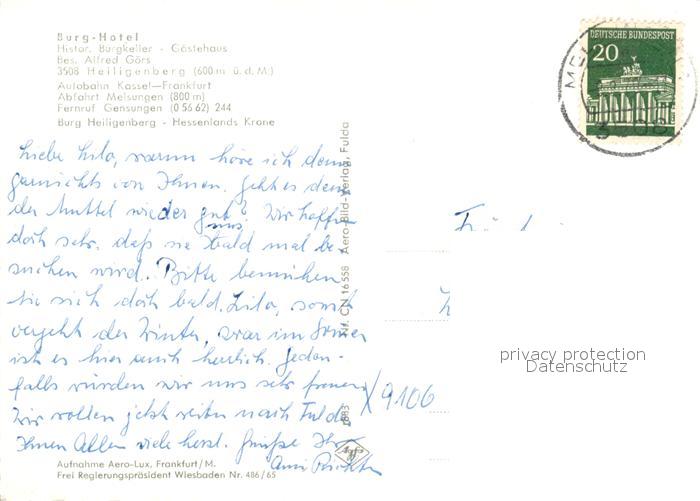 Burg-Hotel
Histor. Burgkeller - Gästehaus
Bes. Alfred Görs
3508 Heiligenberg (600 m ü. d. M.)
Autobahn Kassel—Frankfurt
Abfahrt Melsungen (800 m)
Fernruf Gensungen (0 56 62) 244
Burg Heiligenberg - Hessenlands Krone
DEUTSCHE BUNDESPOST
20
3508
Liebe Lilo, warum höre ich denn
garnichts von Ihnen. Geht es denn
der Mutter wieder gut? Wir hoffen
doch sehr, daß sie uns bald mal be-
suchen wird. Bitte bemühen
Sie sich doch bald, Lilo, sonst
vergeht der Winter, zwar im Sommer
ist es hier auch herrlich. Jeden-
falls würden wir uns sehr freuen
Wir wollen jetzt weiter nach Fulda
Ihnen Allen viele herzl. Grüße Ihre
Nr. CN 16 558 Aero-Bild-Verlag, Fulda
X9106
privacy protection
Datenschutz
Agfa
Aufnahme Aero-Lux, Frankfurt/M.
Frei Regierungspräsident Wiesbaden Nr. 486/65